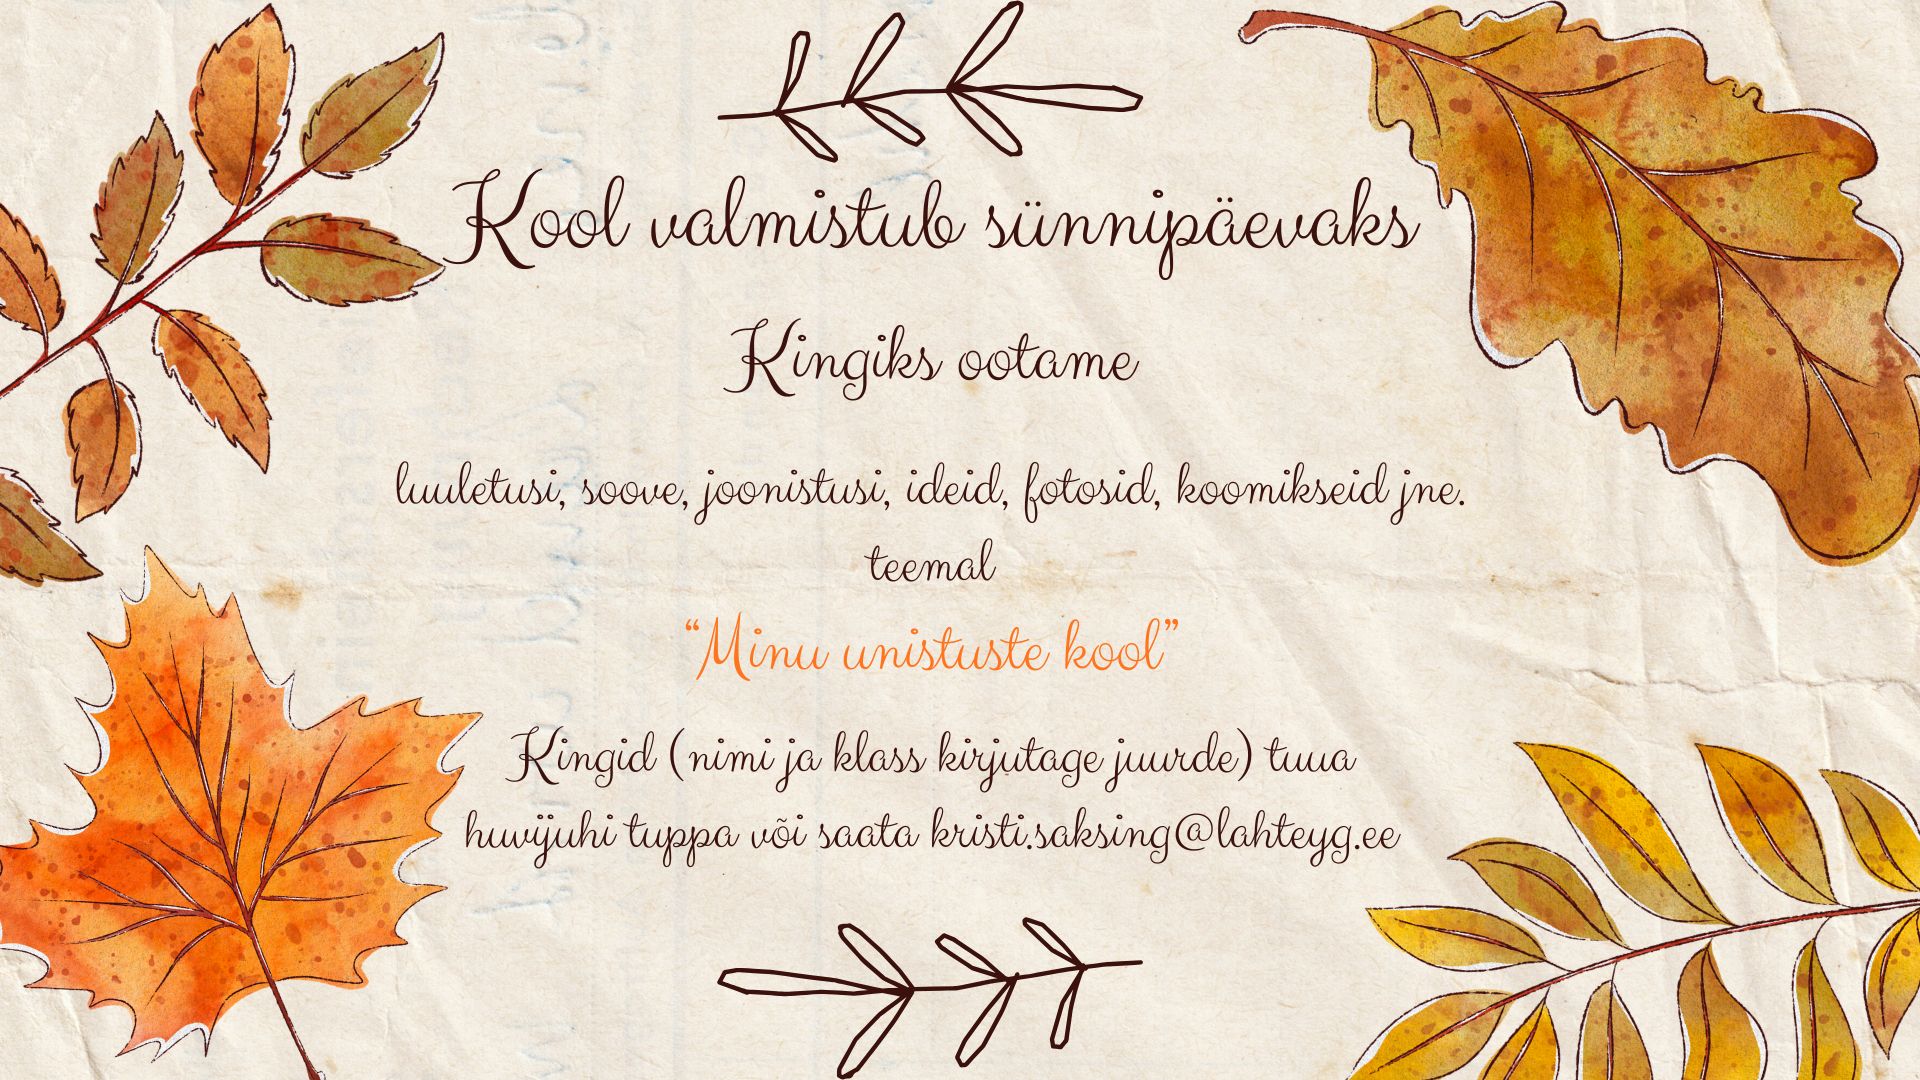 Kool valmistub sünnipäevaks
Kingiks ootame
luuletusi, soove, joonistusi, ideid, fotosid, koomikseid jne.
teemal
“Minu unistuste kool”
Kingid (nimi ja klass kirjutage juurde) tuua
huvijuhi tuppa või saata kristi.saksing@lahteyg.ee